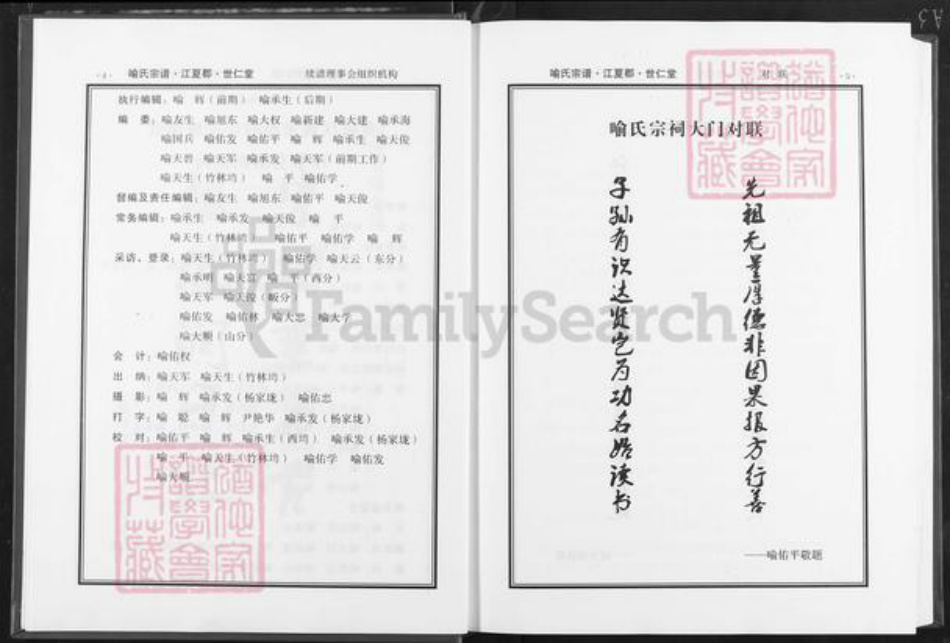 ·4· 喻氏宗谱·江夏郡·世仁堂 续谱理事会组织机构
执行编辑：喻 辉（前期） 喻承生（后期）
编 委：喻友生 喻旭东 喻大权 喻新建 喻大建 喻承海
喻国兵 喻佑发 喻佑平 喻 辉 喻承生 喻天俊
喻天碧 喻天军 喻承发 喻天军（前期工作）
喻天生（竹林塆） 喻 平 喻佑学
督编及责任编辑：喻友生 喻旭东 喻佑平 喻天俊
常务编辑：喻承生 喻承发 喻天俊 喻 平
喻天生（竹林塆） 喻佑平 喻佑学 喻 辉
采访、登录：喻天生（竹林塆） 喻佑学 喻天云（东分）
喻承明 喻天富 喻 平（西分）
喻天军 喻天俊（畈分）
喻佑发 喻佑林 喻大忠 喻大学
喻大顺（山分）
会 计：喻佑权
出 纳：喻天军 喻天生（竹林塆）
摄 影：喻 辉 喻承发（杨家垅） 喻佑忠
打 字：喻 聪 喻 辉 尹艳华 喻承发（杨家垅）
校 对：喻佑平 喻 辉 喻承生（西塆） 喻承发（杨家垅）
喻 平 喻天生（竹林塆） 喻佑学 喻佑发
喻大顺
喻氏宗谱·江夏郡·世仁堂 对 联 ·5·
喻氏宗祠大门对联
先祖无量厚德非因果报方行善
子孙有识达贤岂为功名始读书
——喻佑平敬题
FamilySearch
A3